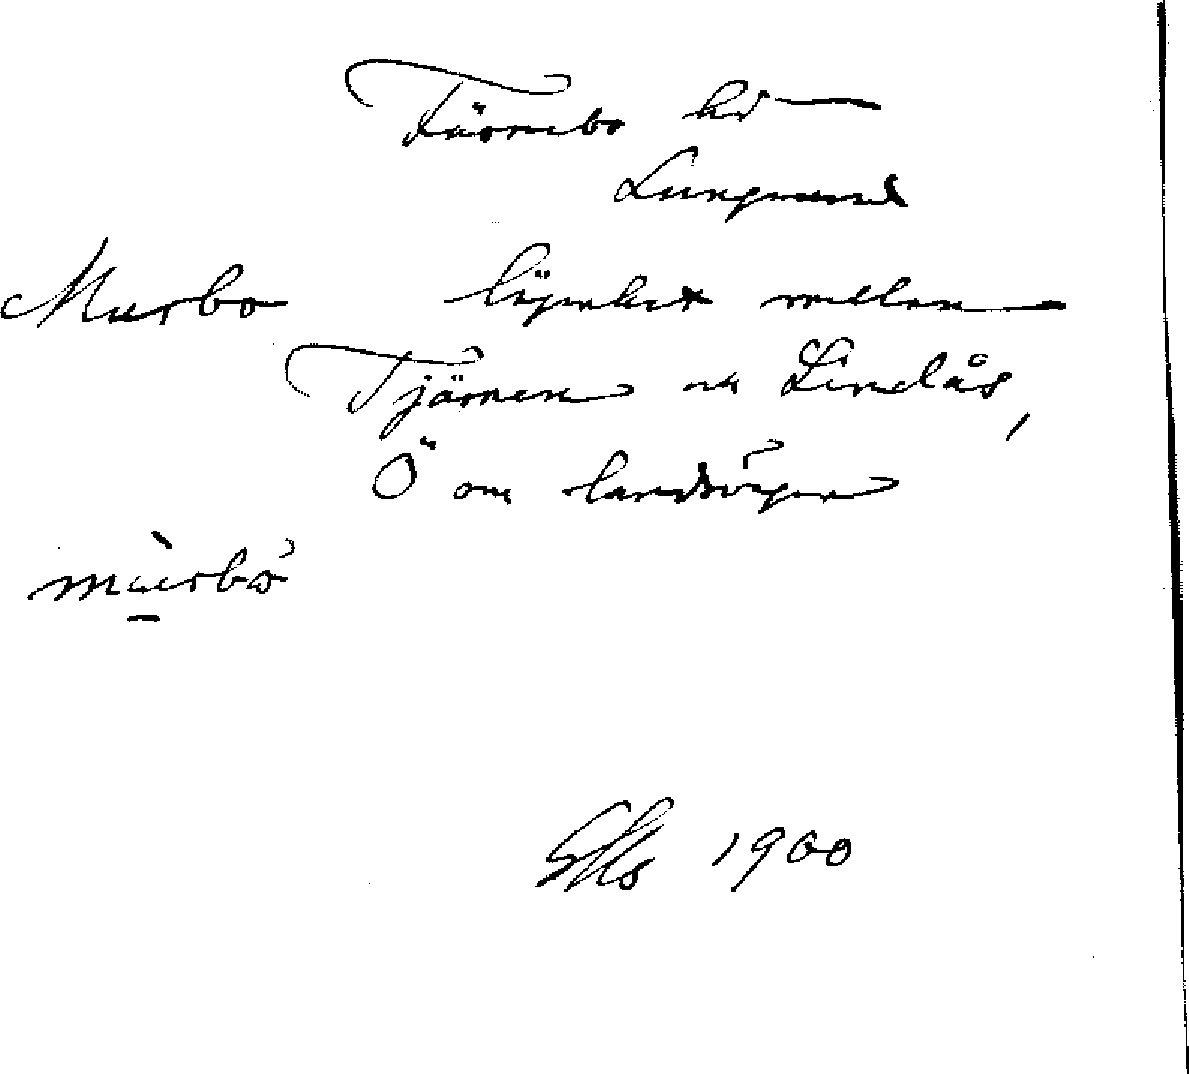 Färnebo hd
Lungsund
Murbo lägenhet mellan
Tjärnen och Lindås,
Ö om landsvägen
1900